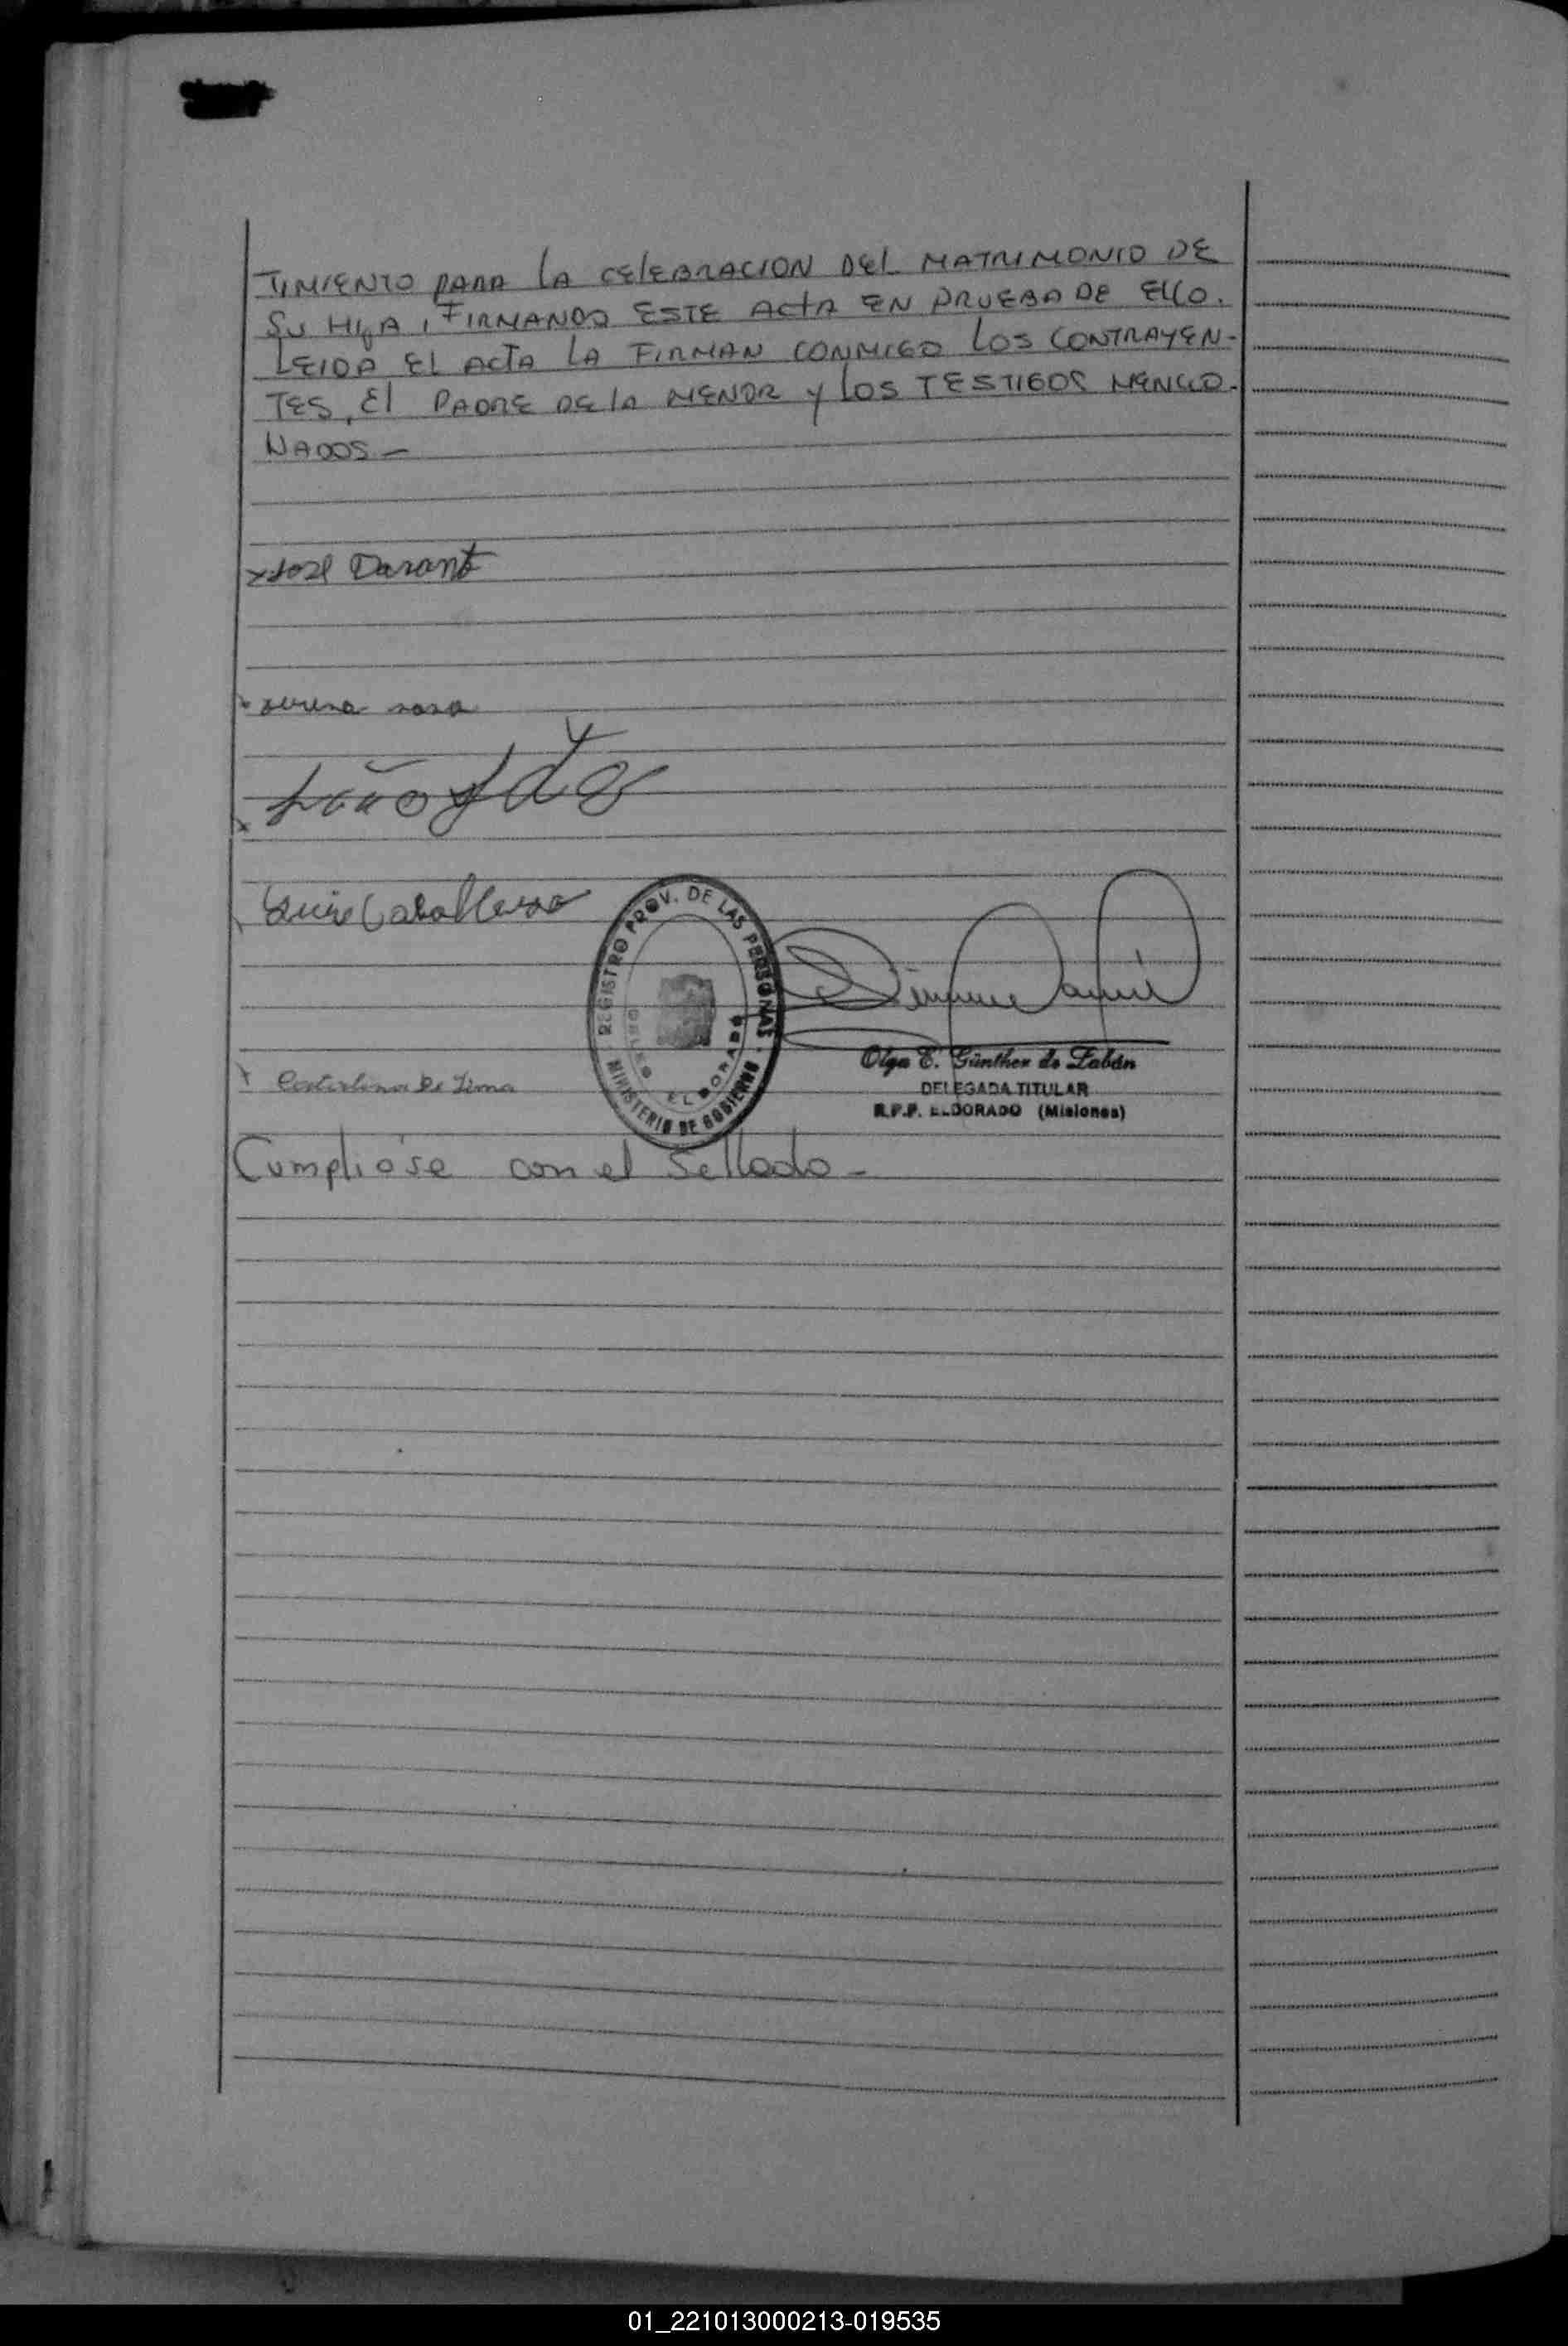 TIMIENTO PARA LA CELEBRACION DEL MATRIMONIO DE
SU HIJA, FIRMANDO ESTE ACTA EN PRUEBA DE ELLO.
LEIDA EL ACTA LA FIRMAN CONMIGO LOS CONTRAYEN-
TES, El PADRE DE LA MENOR y LOS TESTIGOS MENCIO-
NADOS.-
x José Darant
rosa
Luis Caballero
REGISTRO PROV. DE LAS PERSONAS
MINISTERIO DE GOBIERNO
ELDORADO
Olga E. Günther de Zabán
DELEGADA TITULAR
R.P.P. ELDORADO (Misiones)
De Lima
Cumplióse con el Sellado-
01_221013000213-019535